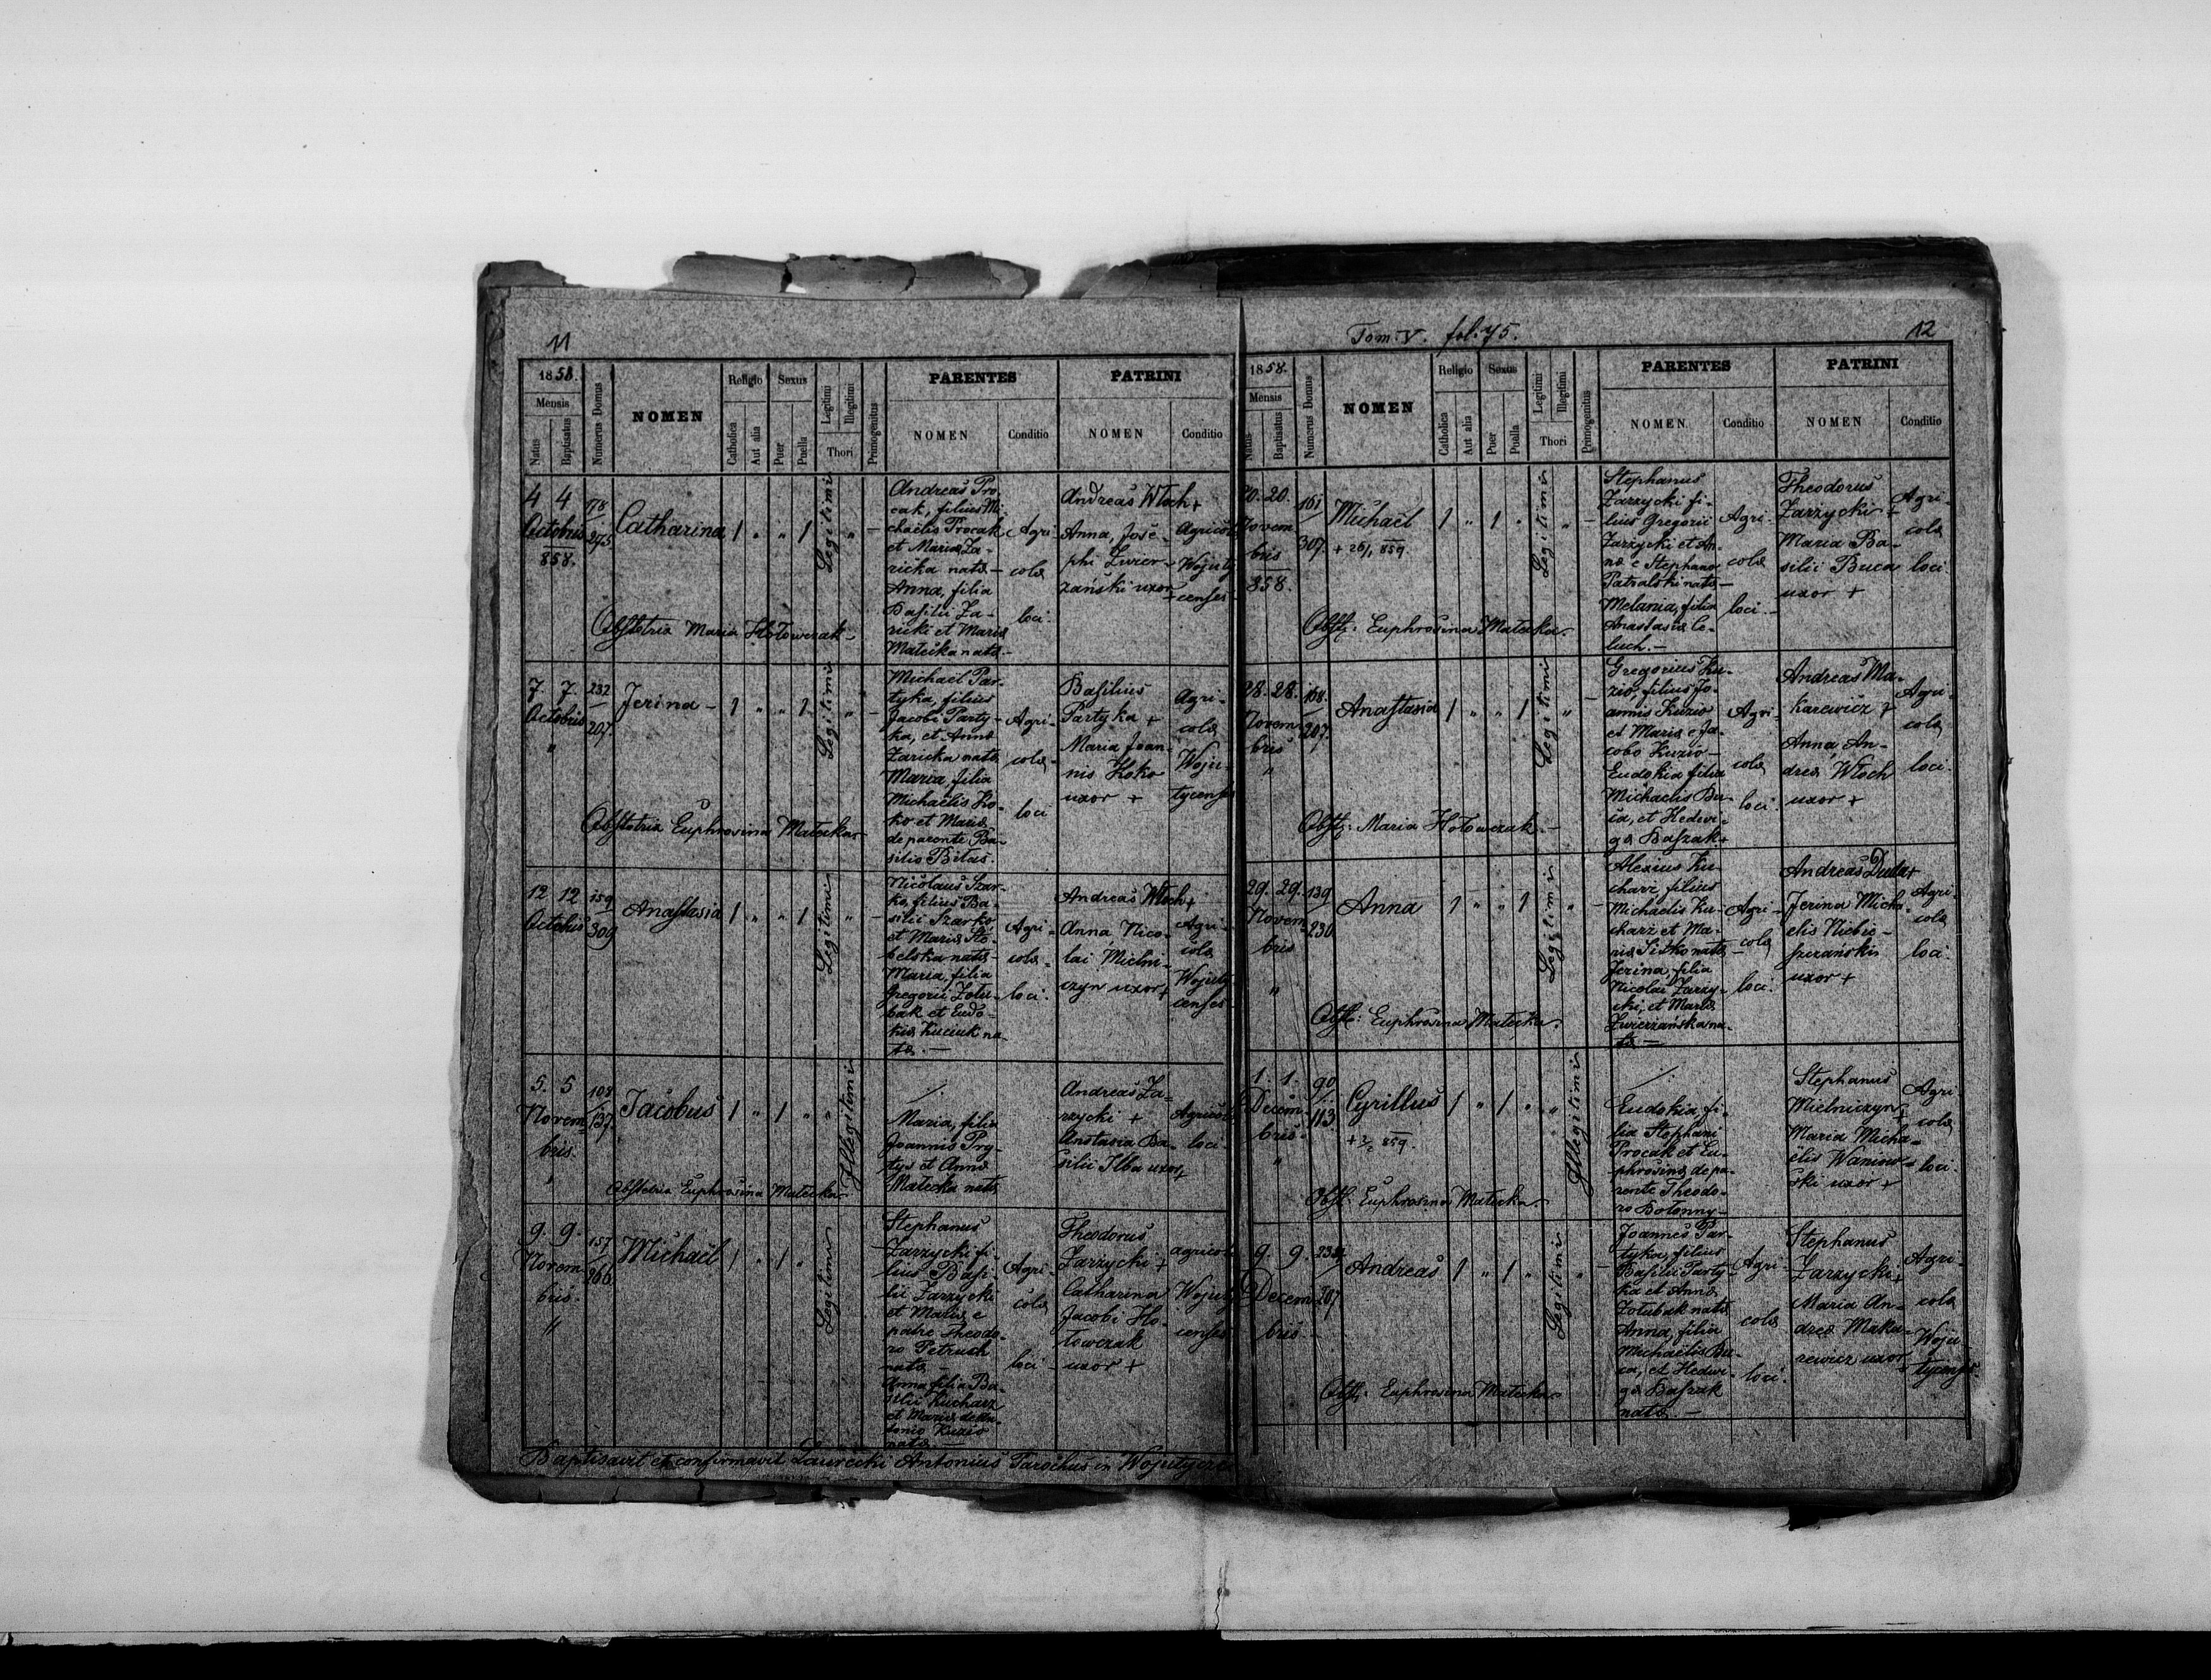 11
1858.
Mensis
Natus
Baptisatus
Numerus Domus
NOMEN
Religio
Catholica
Aut alia
Sexus
Puer
Puella
Legitimi
Illegitimi
Thori
Primogenitus
PARENTES
NOMEN
Conditio
PATRINI
NOMEN
Conditio
4 4
Octobris
858.
178
295
Catharina
1 " " 1
Legitimi
"
Andreas Pro-
cak, filius Mi-
chaelis Procak
et Maria Za-
ricka nata –
Anna, filia
Basilii Za-
ricki et Maria
Mateika nata. –
Agri-
cola
loci.
Andreas Włoch +
Anna, Jose-
phi Zwier-
zański uxor +
Agricola
Wojuty-
censes
Obstetrix Maria Hołowczak –
7. 7.
Octobris
"
232
207.
Jerina –
1 " " 1
Legitimi
"
Michael Par-
tyka, filius
Jacobi Party-
ka, et Anna
Zaricka nata
Maria, filia
Michaelis Ko-
ko et Maria
de parente Ba-
silio Bitas.
Agri-
cola –
loci
Basilius
Partyka +
Maria Joan-
nis Koko
uxor +
Agri-
cola
Woju-
tycenses
Obstetrix Euphrosina Matecka –
12 12
Octobris
159
309
Anastasia
1 " " 1
Legitimi
"
Nicolaus Szar-
ko, filius Ba-
silii Szarko
et Maria Sto-
belska nata –
Maria, filia
Gregorii Zołu-
bak et Eudo-
kia Kuciuk na-
ta. –
Agri-
cola –
loci.
Andreas Włoch +
Anna Nico-
lai Mielni-
czyn uxor +
Agri-
cola
Wojuty-
censes
5. 5
Novem-
bris.
"
108
137.
Jacobus
1 " 1 "
"
Illegitimi
Maria, filia
Joannis Pry-
tys et Anna
Matecka nata
Andreas Za-
rzycki +
Anastasia Ba-
silii Ilba uxor +
Agricola
loci.
Obstetrix Euphrosina Matecka –
9. 9.
Novem-
bris.
"
157
166.
Michael
1 " 1 "
Legitimi
Stephanus
Zarzycki fi-
lius Basi-
lii Zarzycki
et Maria e
patre Theodo-
ro Petrush
nata –
Anna filia Ba-
silii Kucharz
et Maria de An-
tonio Kuzio
nata –
Agri-
cola
loci –
Theodorus
Zarzycki +
Catharina
Jacobi Ho-
łowczak
uxor +
agricola
Wojuty-
censes
Baptisavit et confirmavit Laurecki Antonius Parochus in Wojutycze
Tom. V. fol. 75.
12
1858.
Mensis
Natus
Baptisatus
Numerus Domus
NOMEN
Religio
Catholica
Aut alia
Sexus
Puer
Puella
Legitimi
Illegitimi
Thori
Primogenitus
PARENTES
NOMEN
Conditio
PATRINI
NOMEN
Conditio
20. 20.
Novem-
bris
858.
161
307.
Michael
+ 26/1 859
1 " 1 "
Legitimi
"
Stephanus
Zarzycki fi-
lius Gregorii
Zarzycki et An-
na e Stephano
Patralski nata –
Melania, filia
Anastasia Ce-
luch. –
Agri-
cola
loci. –
Theodorus
Zarzycki +
Maria Ba-
silii Buca
uxor +
Agri-
cola
loci
Obst: Euphrosina Matecka –
28. 28.
Novem-
bris
"
168.
207.
Anastasia
1 " " 1
Legitimi
"
Gregorius Ku-
zio, filius Jo-
annis Kuzio
et Maria e Ja-
cobo Kuzio –
Eudokia filia
Michaelis Bu-
ca, et Hedwi-
ga Baszak +
Agri-
cola
loci.
Andreas Ma-
karewicz +
Anna, An-
drea Włoch
uxor +
Agri-
cola
loci.
Obst: Maria Hołowczak. –
29. 29.
Novem-
bris
"
139
230
Anna
1 " " 1
Legitimi
"
Alexius Ku-
charz, filius
Michaelis Ku-
charz et Ma-
ria Sitko nata –
Jerina, filia
Nicolai Zarzy-
cki, et Maria
Zwierzańska na-
ta –
Agri-
cola
loci.
Andreas Duda +
Jerina Micha-
elis Niebie-
szczański
uxor +
Agri-
cola
loci.
Obst: Euphrosina Matecka.
1. 1.
Decem-
bris
"
90
113
Cyrillus
+ 2/2 859.
1 " 1 "
"
Illegitimi
Eudokia, fi-
lia Stephani
Procak et Eu-
phrosina de pa-
rente Theodo-
ro Bołonny –
Stephanus
Mielniczyn +
Maria Micha-
elis Waniow-
ski uxor +
Agri-
cola
loci
Obst: Euphrosina Matecka.
9. 9.
Decem-
bris
232
207
Andreas
1 " 1 "
Legitimi
"
Joannes Par-
tyka, filius
Basilii Party-
ka et Anna
Zołubak nata
Anna, filia
Michaelis Bu-
ca, et Hedwi-
ga Baszak
nata. –
Agri-
cola
loci.
Stephanus
Zarzycki +
Maria An-
drea Maka-
rewicz uxor +
Agri-
cola
Woju-
tycenses
Obst: Euphrosina Matecka –